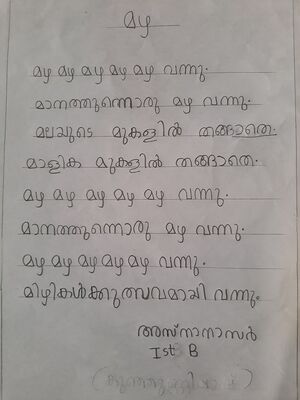 മഴ
മഴ മഴ മഴ മഴ മഴ വന്നു.
മാനത്തുന്നൊരു മഴ വന്നു.
മലയുടെ മുകളിൽ തങ്ങാതെ.
മാളിക മുകളിൽ തങ്ങാതെ.
മഴ മഴ മഴ മഴ മഴ വന്നു.
മാനത്തുന്നൊരു മഴ വന്നു.
മഴ മഴ മഴ മഴ മഴ വന്നു.
മിഴികൾക്കുത്സവമായി വന്നു.
അസ്നാനാസർ
Ist B